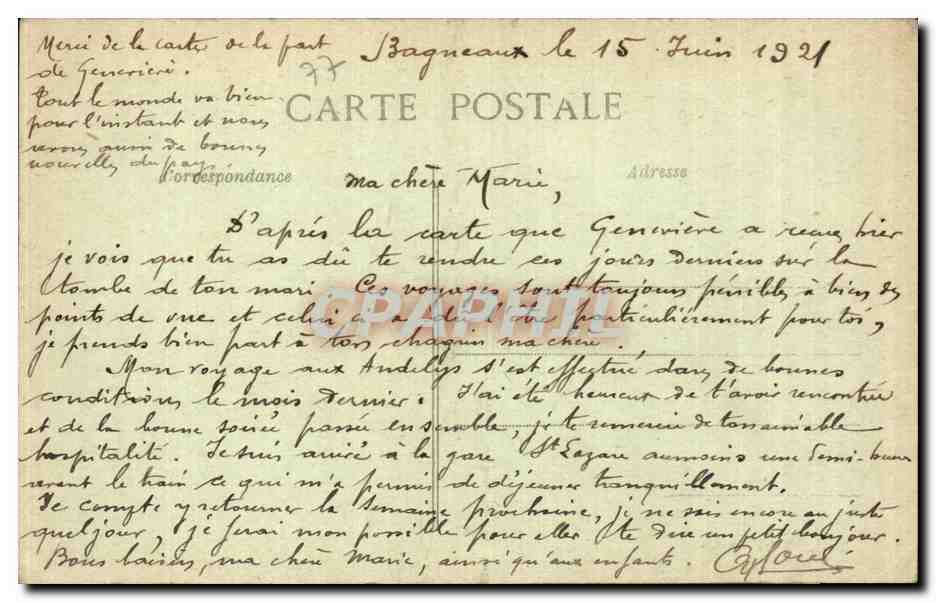 Bagneaux le 15 Juin 1921
Merci de la carte de la part
de Geneviève.
Tout le monde va bien
pour l'instant et nous
avons aussi de bonnes
nouvelles du pays.
77
CARTE POSTALE
Correspondance
Adresse
Ma chère Marie,
D'après la carte que Geneviève a reçue hier
je vois que tu as dû te rendre ces jours derniers sur la
tombe de ton mari. Ces voyages sont toujours pénibles, à bien des
points de vue et celui-ci a dû l'être particulièrement pour toi,
je prends bien part à ton chagrin ma chère.
Mon voyage aux Andelys s'est effectué dans de bonnes
conditions le mois dernier. J'ai été heureux de t'avoir rencontrée
et de la bonne soirée passée ensemble, je te remercie de ton aimable
hospitalité. Je suis arrivé à la gare St Lazare au moins une demi-heure
avant le train ce qui m'a permis de déjeuner tranquillement.
Je compte y retourner la semaine prochaine, je ne sais encore au juste
quel jour, je ferai mon possible pour aller te dire un petit bonjour.
Bons baisers, ma chère Marie, ainsi qu'aux enfants.
CPAPHIL